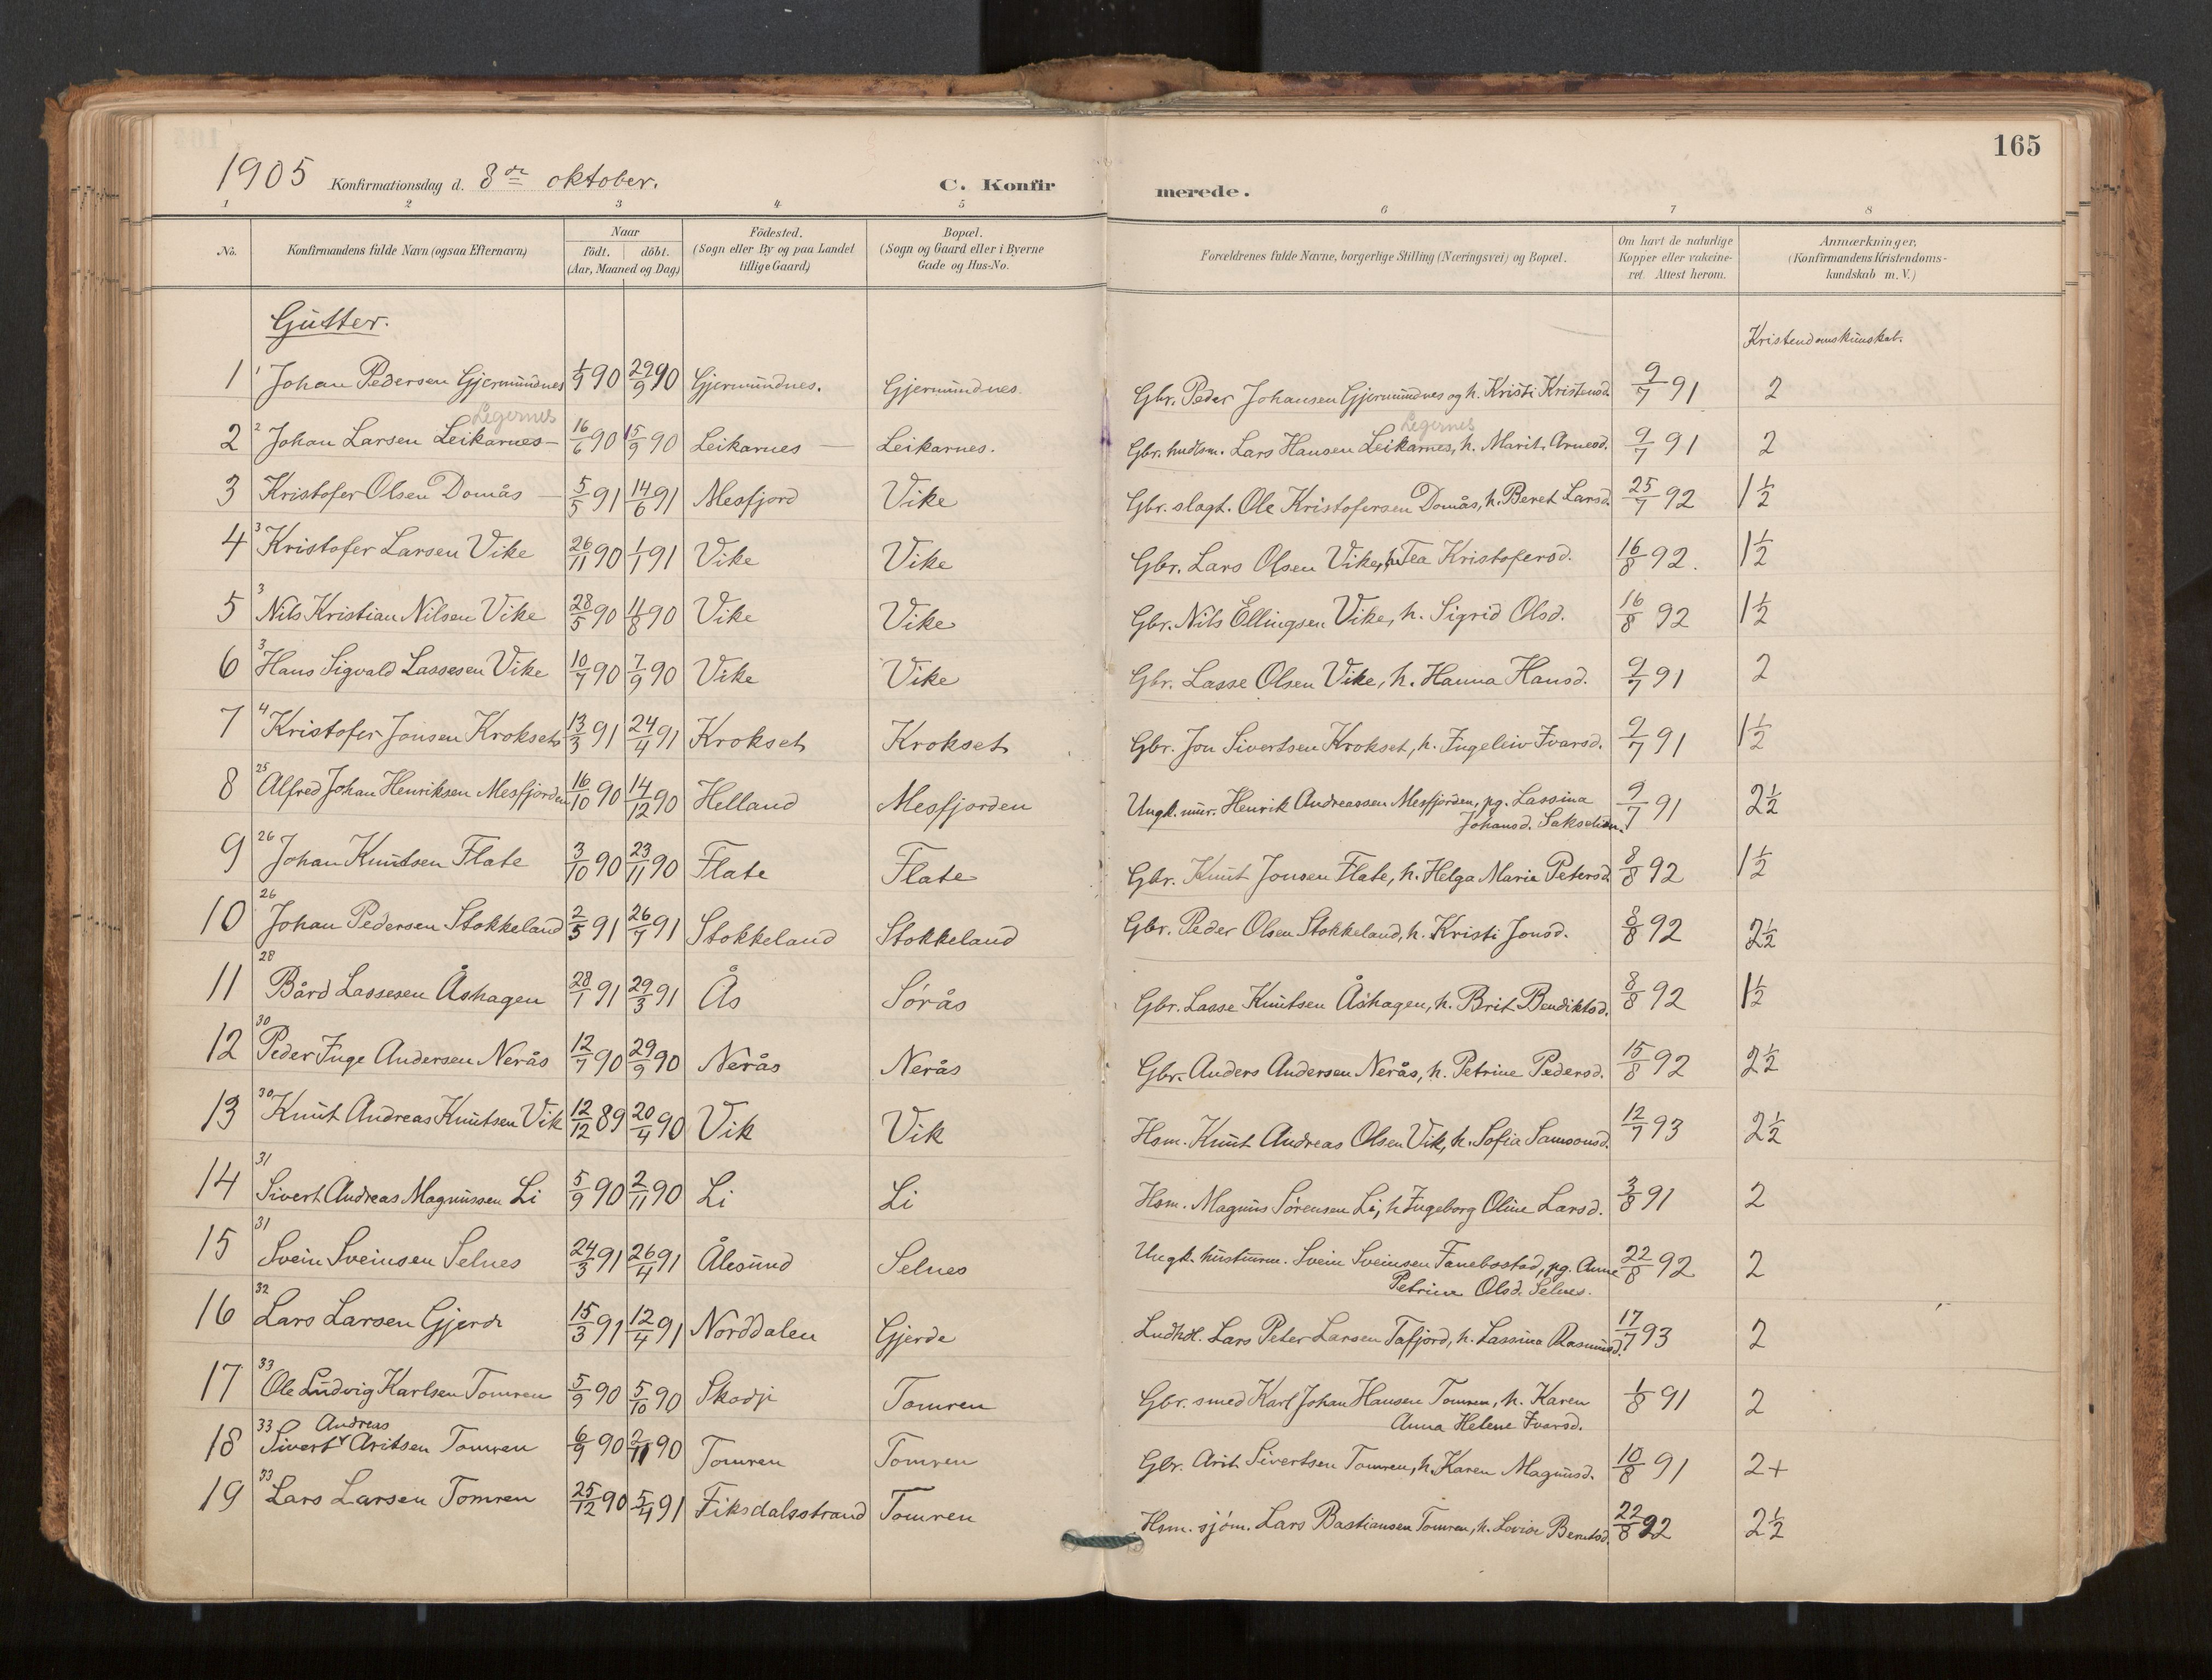 165
1905 Konfirmationsdag d. 8de oktober. C. Konfirmerede.
1 2 3 4 5 6 7 8
No. Konfirmandens fulde Navn (ogsaa Efternavn) Naar født. døbt. (Aar, Maaned og Dag) Födested. (Sogn eller By og paa Landet tillige Gaard) Bopæl. (Sogn og Gaard eller i Byerne Gade og Hus-No. Forældrenes fulde Navne, borgerlige Stilling (Næringsvei) og Bopæl. Om havt de naturlige Kopper eller vakcineret. Attest herom. Anmærkninger, (Konfirmandens Kristendomskundskab m. V.)
Gutter.
Kristendomskunskab.
1 1 Johan Pedersen Gjermundnes 1/9 90 29/9 90 Gjermundnes. Gjermundnes. Gbr. Peder Johansen Gjermundnes og h. Kristi Kristensd. 9/7 91 2
Legernes Legernes
2 2 Johan Larsen Leikarnes – 16/6 90 15/9 90 Leikarnes — Leikarnes. Gbr. hndlsm. Lars Hansen Leikarnes, h. Marit Arnesd. 9/7 91 2
3 Kristofer Olsen Domås — 5/5 91 14/6 91 Mesfjord Vike Gbr. slagt. Ole Kristofersen Domås, h. Beret Larsd. 25/7 92 1 1/2
4 3 Kristofer Larsen Vike 26/11 90 1/1 91 Vike Vike Gbr. Lars Olsen Vike, h. Tea Kristofersd. 16/8 92. 1 1/2
5 3 Nils Kristian Nilsen Vike 28/5 90 4/8 90 Vike Vike Gbr. Nils Ellingsen Vike, h. Sigrid Olsd. 16/8 92 1 1/2
6 3 Hans Sigvald Lassesen Vike 10/7 90 7/9 90 Vike Vike Gbr. Lasse Olsen Vike, h. Hanna Hansd. 9/7 91 2
7 4 Kristofer Jonsen Krokset 13/3 91 24/4 91 Krokset Krokset Gbr. Jon Sivertsen Krokset, h. Ingeleiv Ivarsd. 9/7 91 1 1/2
8 25 Alfred Johan Henriksen Mesfjorden 16/10 90 14/12 90 Helland Mesfjorden Ungk. mur. Henrik Andreassen Mesfjorden, pg. Lassina 9/7 91 2 1/2
Johansd. Sakselien.
9 26 Johan Knutsen Flate 3/10 90 23/11 90 Flate Flate Gbr. Knut Jonsen Flate, h. Helga Marie Petersd. 8/8 92 1 1/2
10 26 Johan Pedersen Stokkeland 2/5 91 26/7 91 Stokkeland Stokkeland Gbr. Peder Olsen Stokkeland, h. Kristi Jonsd. 8/8 92 2 1/2
11 28 Bård Lassesen Åshagen 28/1 91 29/3 91 Ås Sørås Gbr. Lasse Knutsen Åshagen, h. Brit Bendiktsd. 8/8 92 1 1/2
12 30 Peder Inge Andersen Nerås 12/7 90 29/9 90 Nerås Nerås Gbr. Anders Andersen Nerås, h. Petrine Pedersd. 15/8 92 2 1/2
13 30 Knut Andreas Knutsen Vik 12/12 89 20/4 90 Vik Vik Hsm. Knut Andreas Olsen Vik, h. Sofia Samsonsd. 12/7 93 2 1/2
14 31 Sivert Andreas Magnussen Li 5/9 90 2/11 90 Li Li Hsm. Magnus Sørensen Li, h. Ingeborg Oline Larsd. 3/8 91 2
15 31 Svein Sveinsen Selnes 24/3 91 26/4 91 Ålesund Selnes Ungk. Svein Sveinsen Fanebostad, pg. Anne 22/8 92 2
Petrine Olsd. Selnes.
16 32 Lars Larsen Gjerde 15/3 91 12/4 91 Norddalen Gjerde Lars Peter Larsen Tafjord, h. Lassina Rasmusd. 17/7 93 2
17 33 Ole Ludvig Karlsen Tomren 5/9 90 5/10 90 Skodje Tomren Gbr. smed Karl Johan Hansen Tomren, h. Karen 1/8 91 2
Anna Helene Ivarsd.
Andreas
18 33 Sivert Aritsen Tomren 6/9 90 2/11 90 Tomren Tomren Gbr. Arit Sivertsen Tomren, h. Karen Magnusd. 10/8 91 2+
19 33 Lars Larsen Tomren 25/12 90 5/4 91 Fiksdalsstrand Tomren Hsm. sjøm. Lars Bastiansen Tomren, h. Lovise Berntsd. 22/8 92 2 1/2